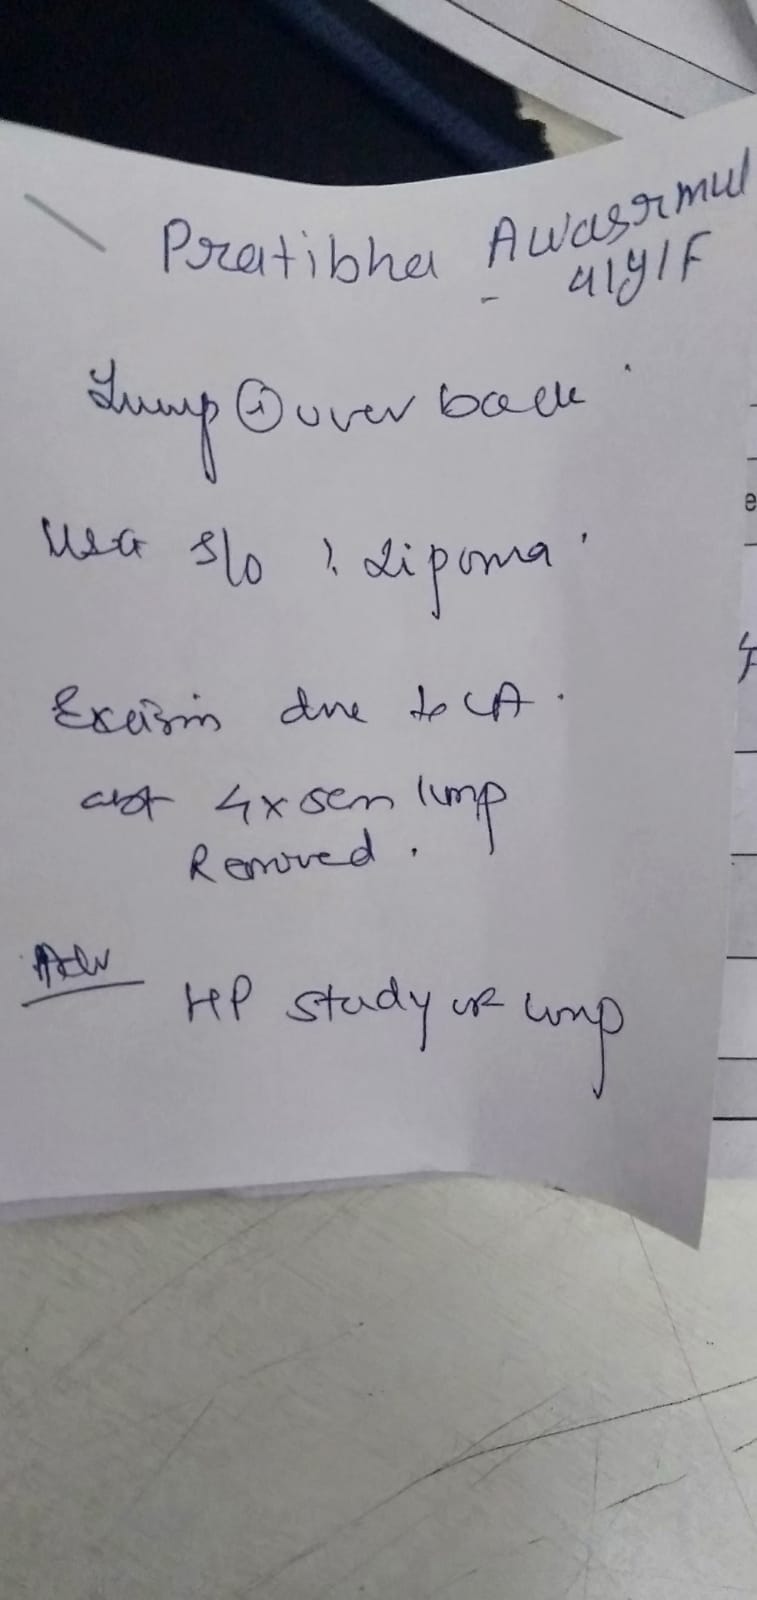 Pratibha Awasarmul
41y/F
Lump ⊕ over back
USG S/o ? Lipoma
Excision done to LA.
abt 4x5cm lump
Removed.
Adv
HP study of lump